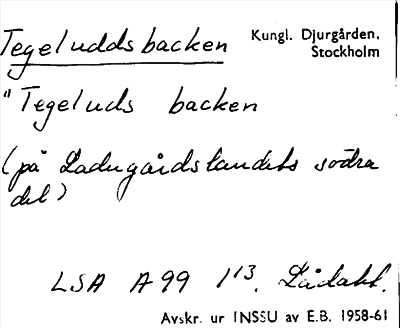 Tegeluddsbacken
Kungl. Djurgården,
Stockholm
"Tegeluds backen
(på Ladugårdslandets södra
del)
LSA A99 1¹³. Lådakt.
Avskr. ur INSSU av E.B. 1958-61